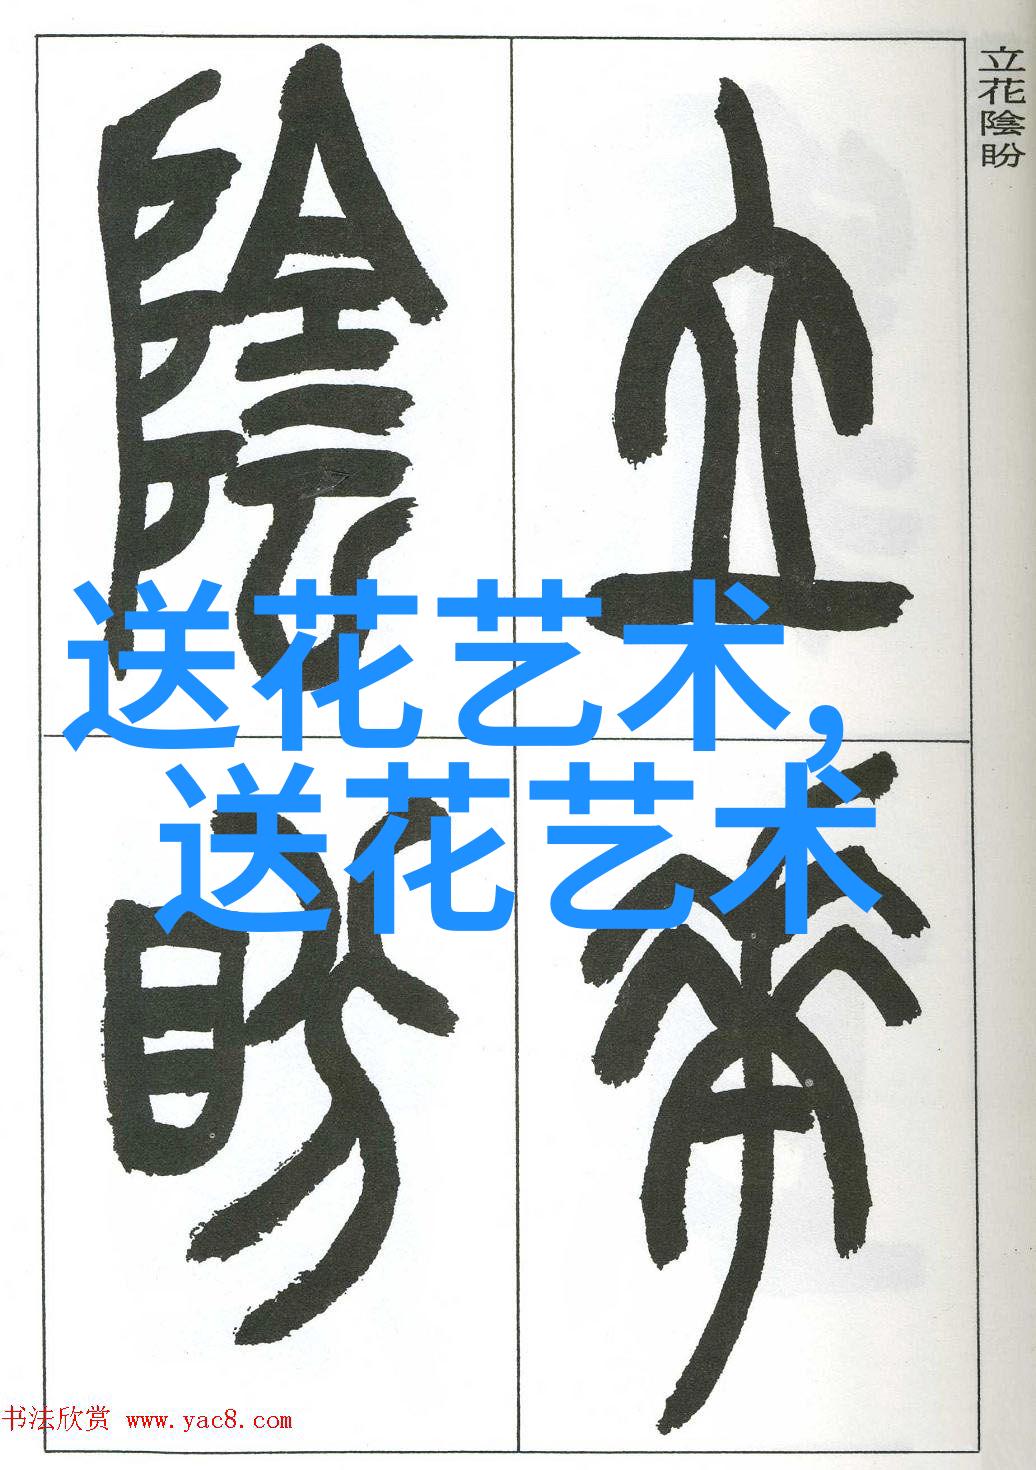 立花陰盼
立花
陰盼
送花艺术,
送花艺术
书法欣赏 www.yac8.com